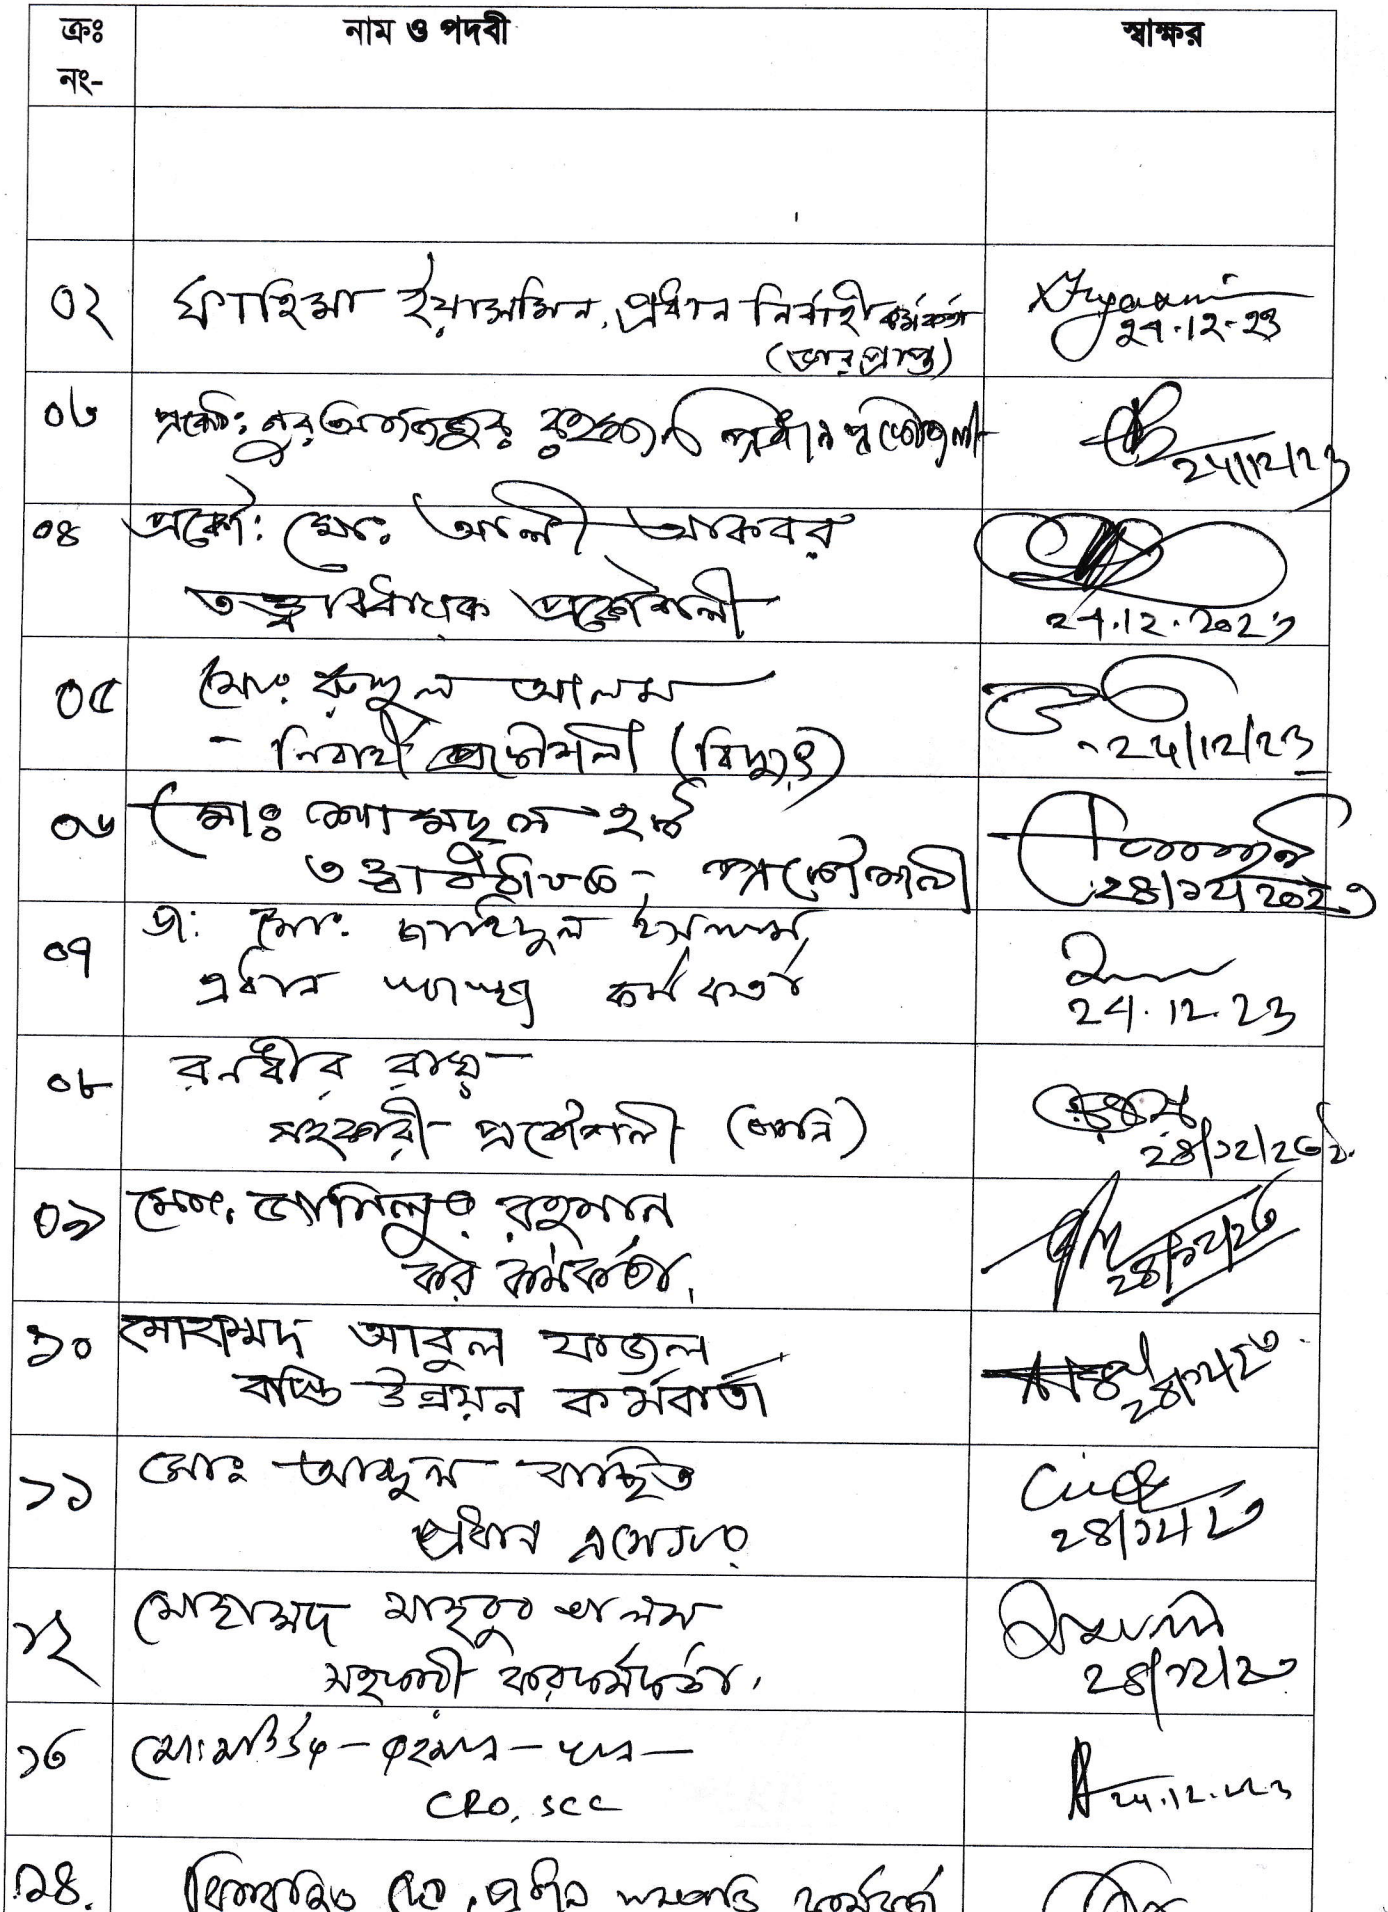 ক্রঃ নাম ও পদবী স্বাক্ষর
নং-
০২ ফাহিমা ইয়াসমিন, প্রধান নির্বাহী কর্মকর্তা
(ভারপ্রাপ্ত)
24.12.23
০৩ প্রকৌ: নুর আজিজুর রহমান প্রধান প্রকৌশলী
24/12/23
০৪ প্রকৌ: মো: আলী আকবর
তত্ত্বাবধায়ক প্রকৌশলী
24.12.2023
০৫ মো: রুহুল আলম
- নির্বাহী প্রকৌশলী (বিদ্যুৎ)
24/12/23
০৬ মোঃ শামছুল হক
তত্ত্বাবধায়ক প্রকৌশলী
২৪/১২/২০২৩
০৭ ডা: মো: জাহিদুল ইসলাম,
প্রধান স্বাস্থ্য কর্মকর্তা
24.12.23
০৮ রনধীর রায়
সহকারী প্রকৌশলী (পানি)
২৪/১২/২৩
০৯ মোঃ জামিলুর রহমান
কর কর্মকর্তা,
২৪/১২/২৩
১০ মোহাম্মদ আবুল ফজল
বস্তি উন্নয়ন কর্মকর্তা
২৪/১২/২৩
১১ মোঃ আব্দুল বাছিত
প্রধান এসেসর
২৪/১২/২৩
১২ মোহাম্মদ মাহবুব আলম
সহকারী কর কর্মকর্তা,
২৪/১২/২৩
১৩ মোঃ রহমান খান
CRO, SCC
24.12.23
১৪. প্রধান কর্মকর্তা